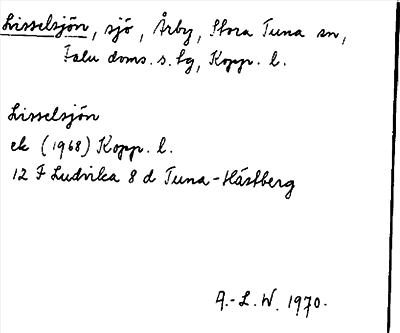 Lisselsjön, sjö, Årby, Stora Tuna sn,
Falu doms. s. tg, Kopp. l.
Lisselsjön
ek (1968) Kopp. l.
12 F Ludvika 8 d Tuna-Hästberg
A.-L. W. 1970.